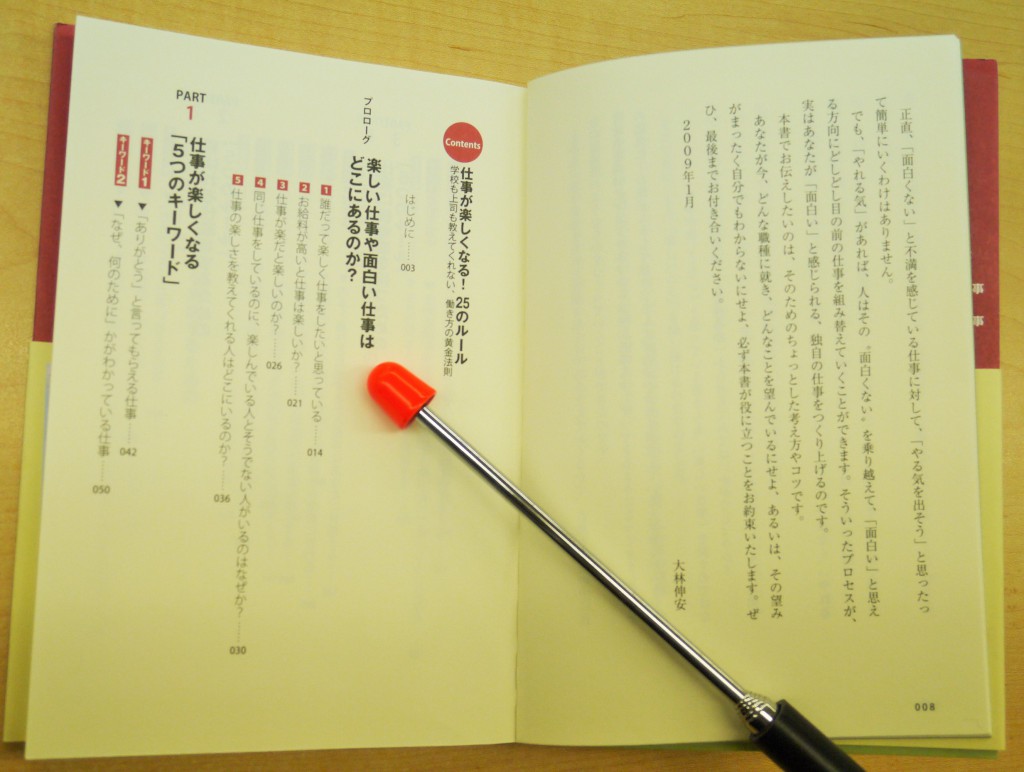 正直、「面白くない」と不満を感じている仕事に対して、「やる気を出そう」と思ったっ
て簡単にいくわけはありません。
でも、「やれる気」があれば、人はその〝面白くない〟を乗り越えて、「面白い」と思え
る方向にどしどし目の前の仕事を組み替えていくことができます。そういったプロセスが、
実はあなたが「面白い」と感じられる、独自の仕事をつくり上げるのです。
本書でお伝えしたいのは、そのためのちょっとした考え方やコツです。
あなたが今、どんな職種に就き、どんなことを望んでいるにせよ、あるいは、その望み
がまったく自分でもわからないにせよ、必ず本書が役に立つことをお約束いたします。ぜ
ひ、最後までお付き合いください。
2009年1月
大林伸安
008
Contents
仕事が楽しくなる!25のルール
学校も上司も教えてくれない、働き方の黄金法則
はじめに……003
プロローグ
楽しい仕事や面白い仕事は
どこにあるのか?
1 誰だって楽しく仕事をしたいと思っている……014
2 お給料が高いと仕事は楽しいか?……021
3 仕事が楽だと楽しいのか?……026
4 同じ仕事をしているのに、楽しんでいる人とそうでない人がいるのはなぜか?……030
5 仕事の楽しさを教えてくれる人はどこにいるのか?……036
PART
1
仕事が楽しくなる
「5つのキーワード」
キーワード1 ▼「ありがとう」と言ってもらえる仕事……042
キーワード2 ▼「なぜ、何のために」かがわかっている仕事……050